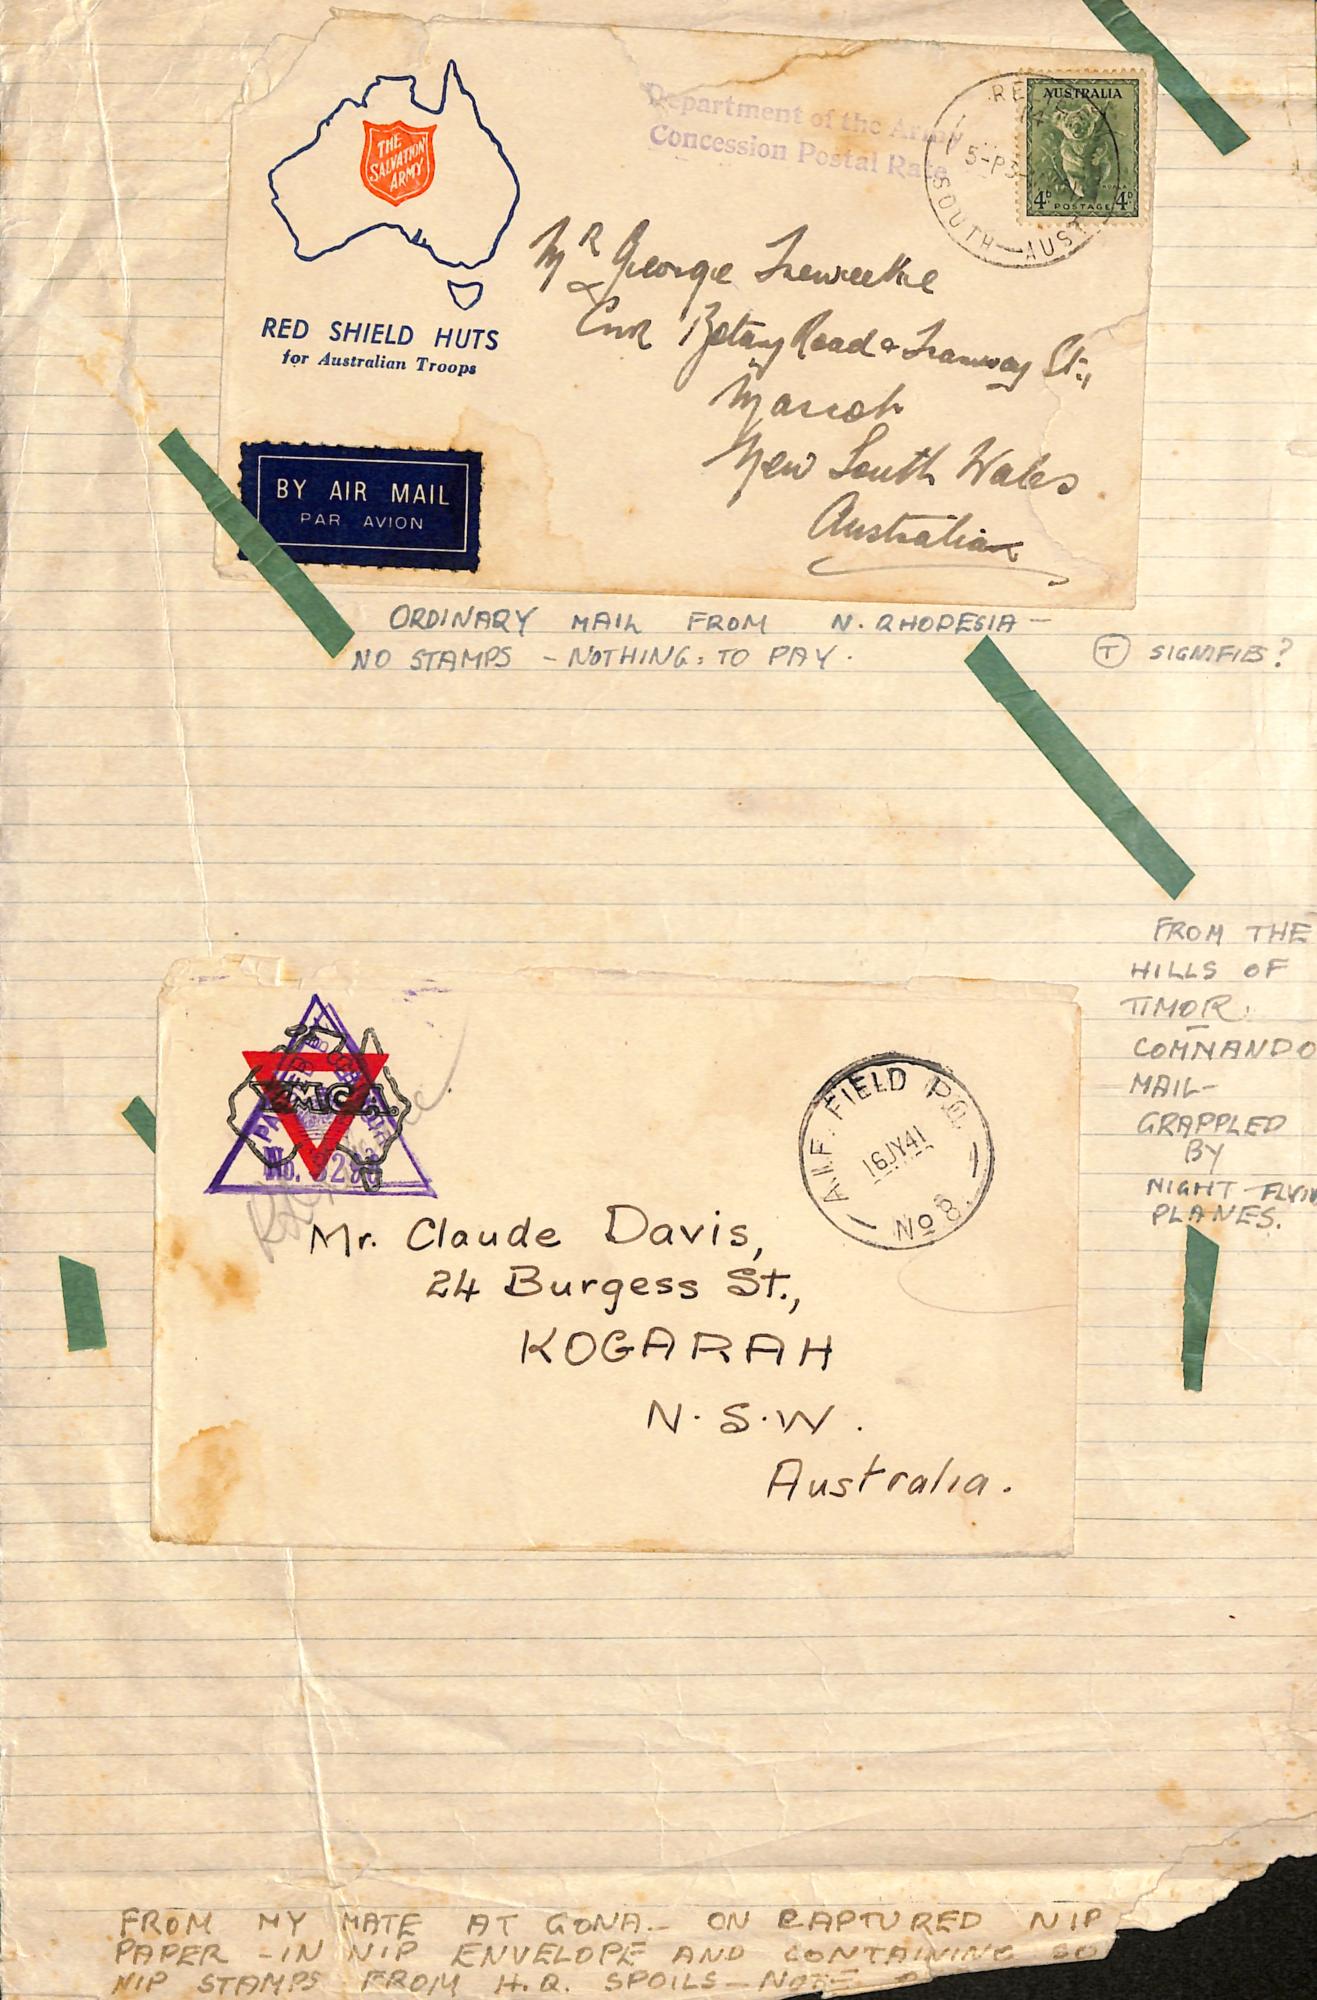 THE
SALVATION
ARMY
RED SHIELD HUTS
for Australian Troops
BY AIR MAIL
PAR AVION
Department of the Army
Concession Postal Rate
AUSTRALIA
4D POSTAGE 4D
SOUTH AUST
Mr George Treweeke
Cnr Botany Road & Tramway St.,
Mascot
New South Wales
Australia
ORDINARY MAIL FROM N. RHODESIA -
NO STAMPS - NOTHING TO PAY.
T SIGNIFIES?
FROM THE
HILLS OF
TIMOR.
COMMANDO
MAIL-
GRAPPLED
BY
NIGHT-FLYIN
PLANES.
Y.M.C.A.
A.I.F. FIELD P.O.
16JY41
No 8
Mr. Claude Davis,
24 Burgess St.,
KOGARAH
N.S.W.
Australia.
FROM MY MATE AT GONA - ON CAPTURED NIP
PAPER - IN NIP ENVELOPE AND CONTAINING SO
NIP STAMPS FROM H.Q. SPOILS - NOTE